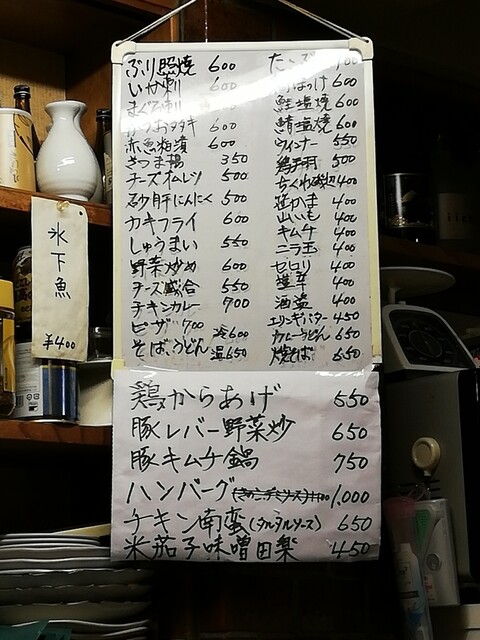 ぶり照焼 600
いか刺 600
まぐろ刺
かつおタタキ 600
赤魚粕漬 600
さつま揚 350
チーズオムレツ 500
砂肝にんにく 500
カキフライ 600
しゅうまい 550
野菜炒め 600
チーズ盛合 550
チキンカレー 700
ピザ 700
そば、うどん 冷600 温650
鮭塩焼 600
鯖塩焼 600
ウィンナー 550
鶏手羽 500
ちくわ磯辺 400
笹かま 400
山いも 400
キムチ 400
ニラ玉 400
セロリ 400
400
酒盗 400
エリンギバター 450
カレーうどん 650
焼そば 650
氷下魚
¥400
鶏からあげ 550
豚レバー野菜炒 650
豚キムチ鍋 750
ハンバーグ 1,000
チキン南蛮(タルタルソース) 650
米茄子味噌田楽 450